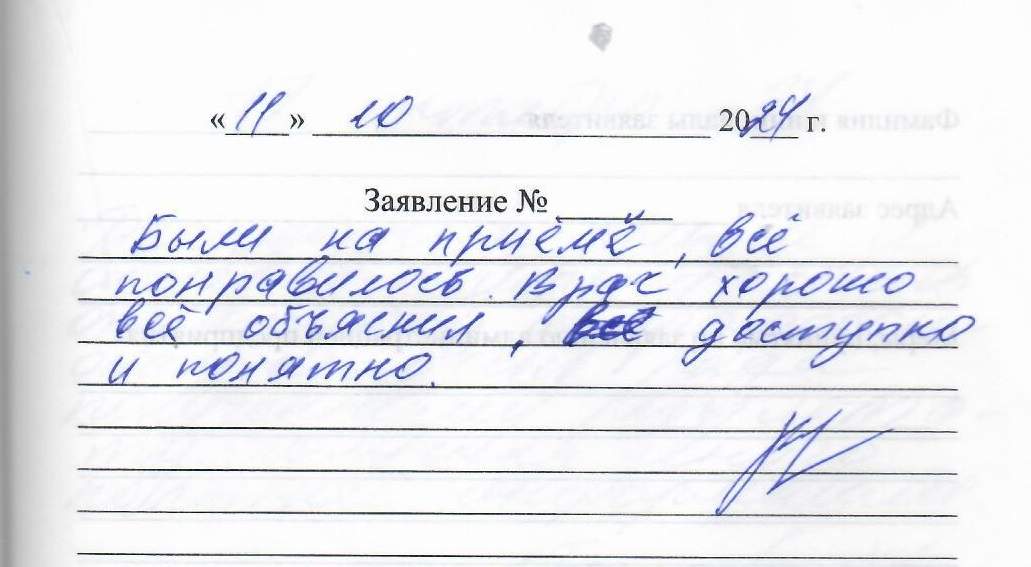 «11» 10 2024 г.
Заявление №
Были на приёме, всё
понравилось. Врач хорошо
всё объяснил, всё доступно
и понятно.